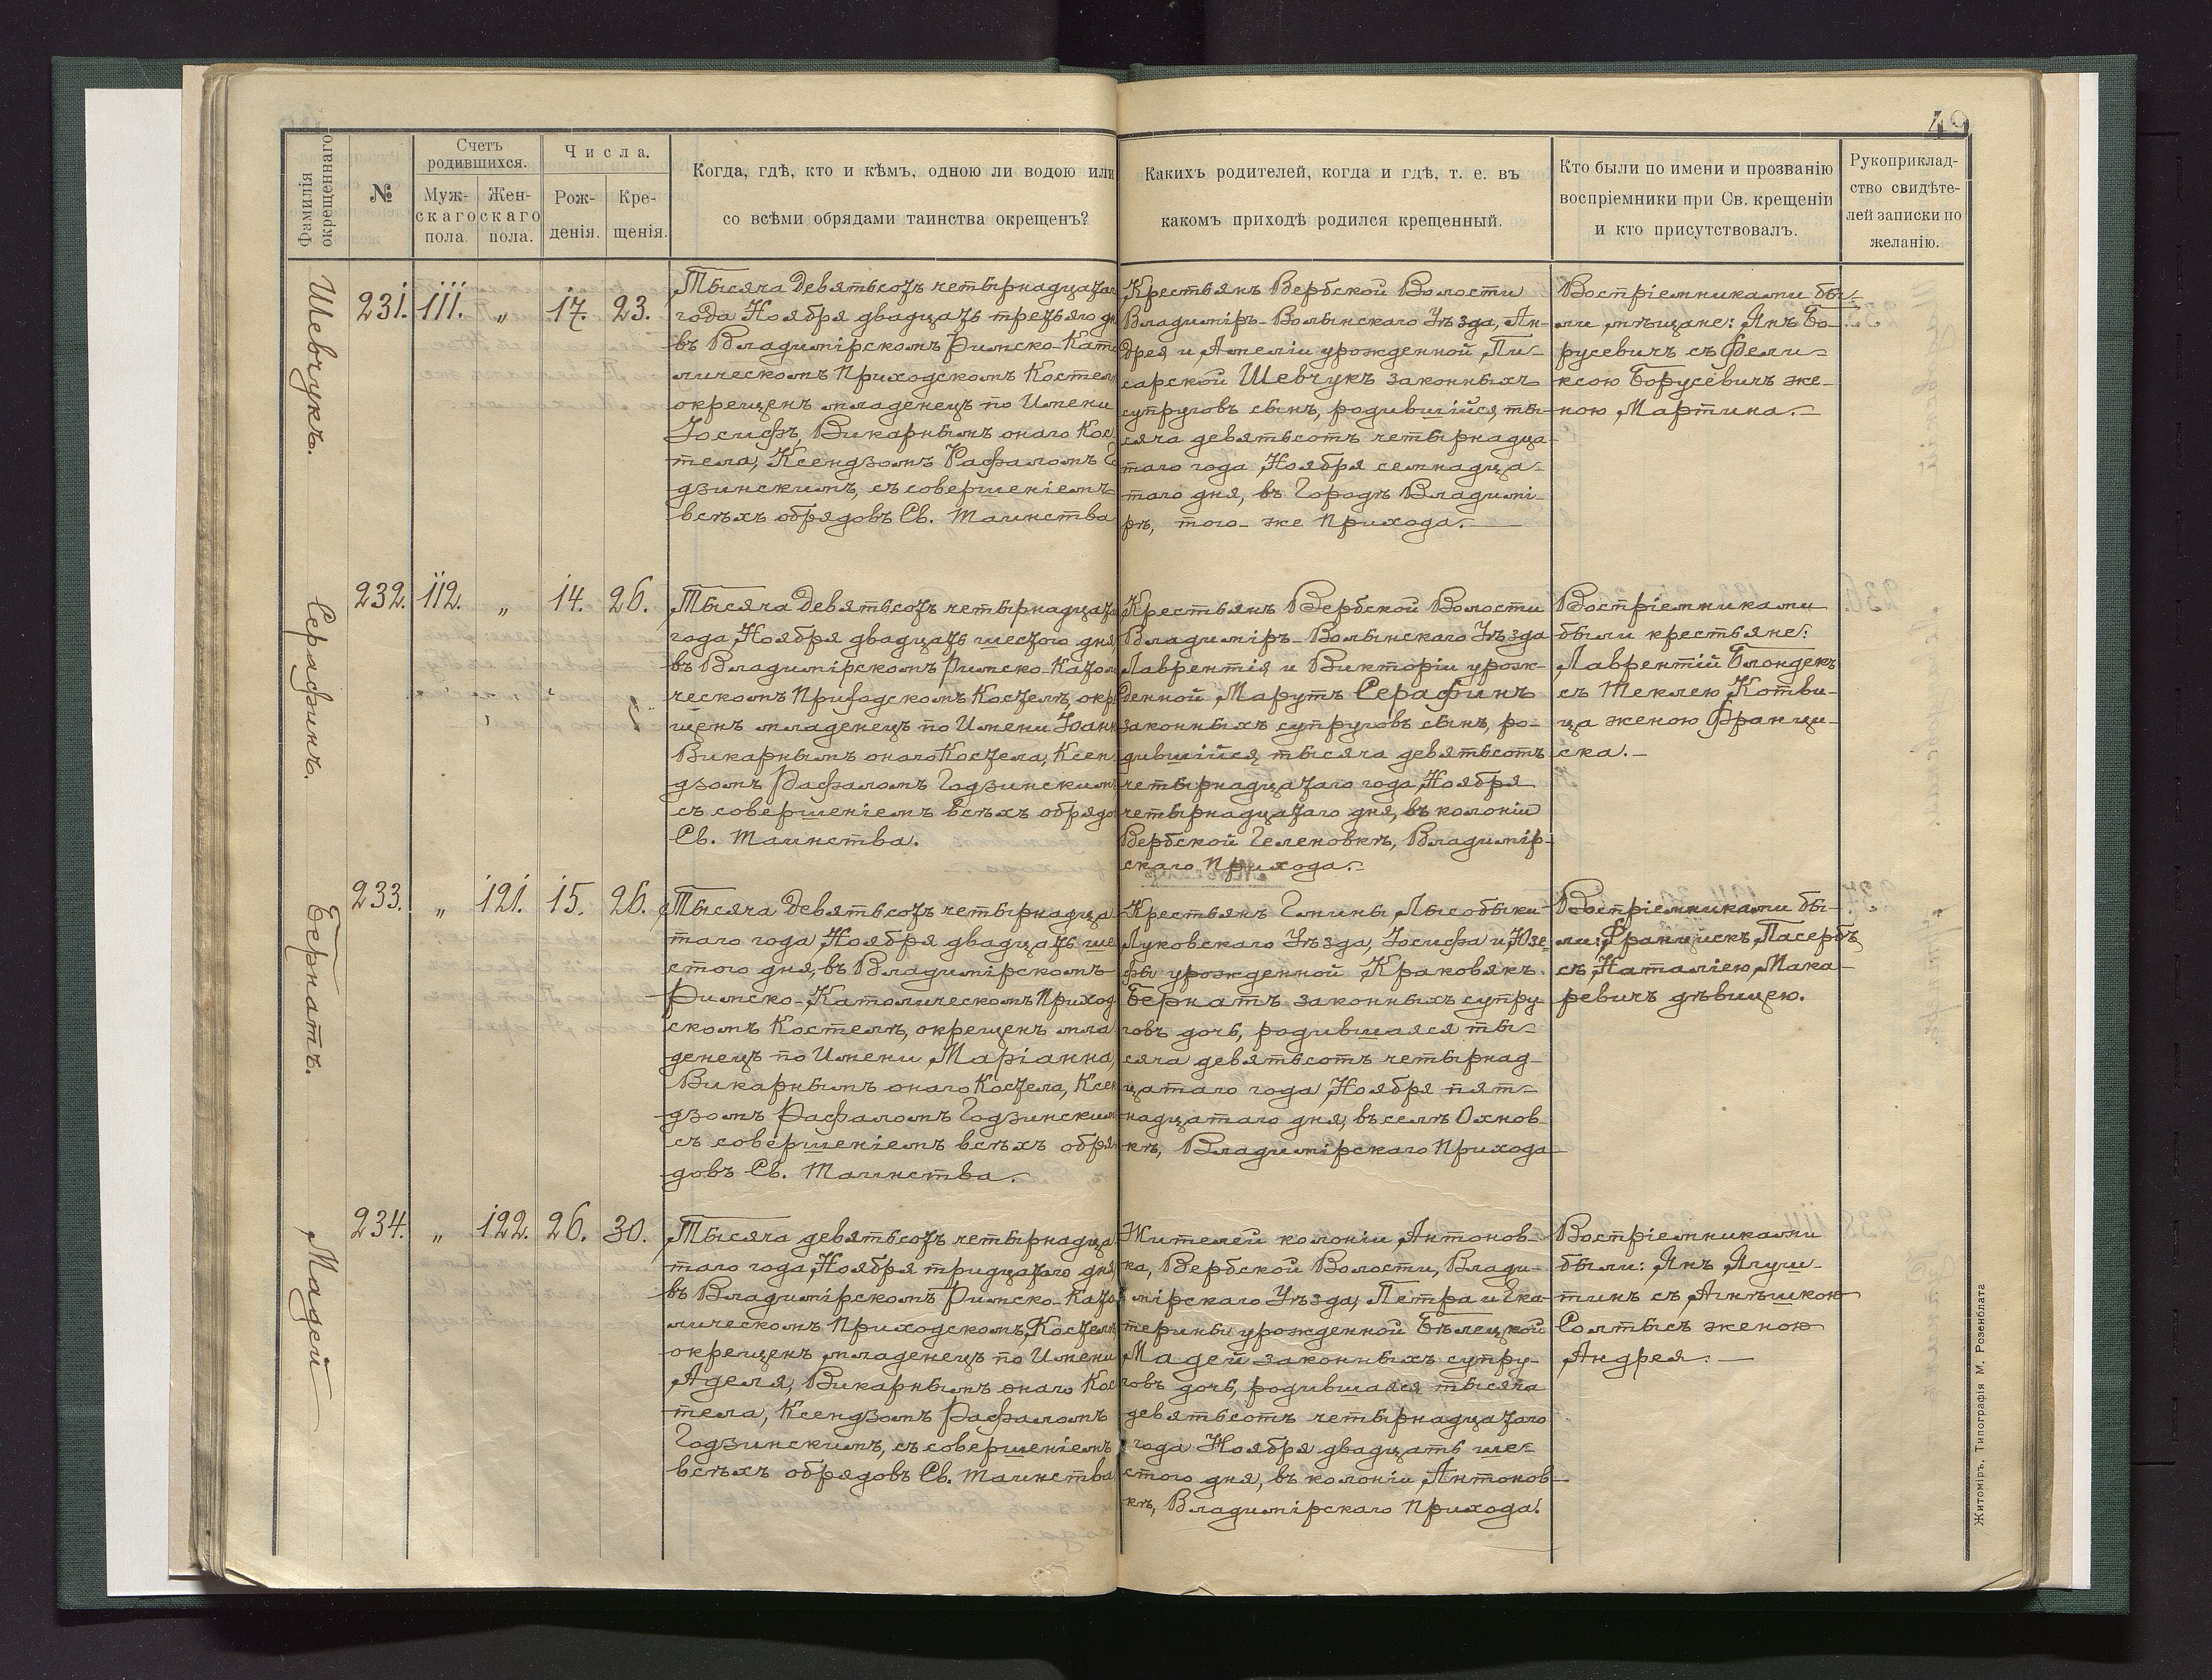 49
Фамилія
окрещеннаго
№
Счетъ
родившихся.
Муж-
скаго
пола.
Жен-
скаго
пола.
Числа.
Рож-
денія.
Кре-
щенія.
Когда, гдѣ, кто и кѣмъ, одною ли водою или
со всѣми обрядами таинства окрещенъ?
Какихъ родителей, когда и гдѣ, т. е. въ
какомъ приходѣ родился крещенный.
Кто были по имени и прозванію
воспріемники при Св. крещеніи
и кто присутствовалъ.
Рукоприклад-
ство свидѣте-
лей записки по
желанію.
Шевчукъ.
231. 111. „ 17. 23.
Тысяча девятьсотъ четырнадцатаго
года Ноября двадцать третьяго дн
въ Владимірскомъ Римско-Като
лическомъ Приходскомъ Костел
окрещенъ младенецъ по Имени
Іосифъ, Викарнымъ онаго Кос
тела, Ксендзомъ Рафаломъ Го
дзинскимъ, съ совершеніемъ
всѣхъ обрядовъ Св. Таинства
Крестьянъ Вербской Волости
Владиміръ-Волынскаго Уѣзда, Ан-
дрея и Амеліи урожденной Пи-
сарской Шевчукъ законныхъ
супруговъ сынъ, родившійся ты-
сяча девятьсотъ четырнадца-
таго года Ноября семнадца-
таго дня, въ Городѣ Владимі-
рѣ, того-же Прихода.
Воспріемниками бы-
ли мѣщане: Янъ Бо-
русевичъ съ Фели-
ксою Борусевичъ же-
ною Мартина.
Серафинъ.
232. 112. „ 14. 26.
Тысяча девятьсотъ четырнадцата
года Ноября двадцать шестого дня
въ Владимірскомъ Римско-Катол
ческомъ Приходскомъ Костелѣ, окр
щенъ младенецъ по Имени Іоанн
Викарнымъ онаго Костела, Ксен
дзомъ Рафаломъ Годзинским
съ совершеніемъ всѣхъ обрядо
Св. Таинства.
Крестьянъ Вербской Волости
Владиміръ-Волынскаго Уѣзда
Лаврентія и Викторіи урож-
денной Марутъ Серафинъ
законныхъ супруговъ сынъ, ро-
дившійся тысяча девятьсотъ
четырнадцатаго года Ноября
четырнадцатаго дня, въ колоніи
Вербской Геленовкѣ, Владимір-
скаго Прихода.
Воспріемниками
были крестьяне:
Лаврентій Блондекъ
съ Теклею Котви-
ца женою Франци-
ска.
Бернатъ.
233. „ 121. 15. 26.
Тысяча девятьсотъ четырнадца
таго года Ноября двадцать ше
стого дня, въ Владимірскомъ
Римско-Католическомъ Приход
скомъ Костелѣ, окрещенъ мла
денецъ по Имени Маріанна,
Викарнымъ онаго Костела, Ксен
дзомъ Рафаломъ Годзинским
съ совершеніемъ всѣхъ обря
довъ Св. Таинства.
Крестьянъ Гмины Лысобыки
Луковскаго Уѣзда, Іосифа и Юзе-
фы урожденной Краковякъ
Бернатъ законныхъ супру
говъ дочь, родившаяся ты-
сяча девятьсотъ четырнад-
цатаго года Ноября пят-
надцатаго дня, въ селѣ Охнов-
кѣ, Владимірскаго Прихода
Воспріемниками бы-
ли: Францискъ Пасербъ
съ Наталіею Мака-
ревичъ дѣвицею.
Мадей
234. „ 122. 26. 30.
Тысяча девятьсотъ четырнадца
таго года Ноября тридцатаго дня
въ Владимірскомъ Римско-Като
лическомъ Приходскомъ Костелѣ
окрещенъ младенецъ по Имени
Аделя, Викарнымъ онаго Кос
тела, Ксендзомъ Рафаломъ
Годзинскимъ, съ совершеніемъ
всѣхъ обрядовъ Св. Таинства
Жителей колоніи Антонов-
ка, Вербской Волости, Влади-
мірскаго Уѣзда, Петра и Ека-
терины урожденной Бѣлецкой
Мадей законныхъ супру-
говъ дочь, родившаяся тысяча
девятьсотъ четырнадцатаго
года Ноября двадцать ше-
стого дня, въ колоніи Антонов-
кѣ, Владимірскаго Прихода.
Воспріемниками
были: Янъ Ягуш-
тинъ съ Агнѣшкою
Солтысъ женою
Андрея.
Житоміръ, Типографія М. Розенблата